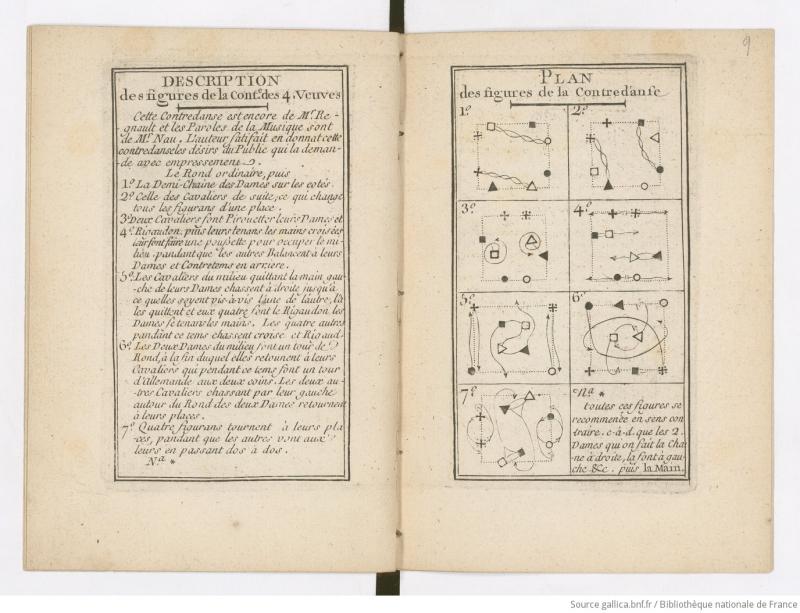 DESCRIPTION
des figures de la Cont.e des 4. Veuves
Cette Contredanse est encore de M.r Re-
gnault et les Paroles de la Musique sont
de M.r Nau. L'auteur satisfait en donnat cette
contredanse les désirs du Public qui la deman-
de avec empressement.
Le Rond ordinaire, puis
1.o La Demi-Chaine des Dames sur les cotés.
2.o Celle des Cavaliers de suite, ce qui change
tous les figurans d'une place.
3.o Deux Cavaliers font Pirouetter leurs Dames et
4.o Rigaudon, puis leurs tenans les mains croisées
leur font faire une poussette pour occuper le mi-
lieu, pandant que les autres Balancent à leurs
Dames et Contretems en arriere.
5.o Les Cavaliers du milieu quittant la main gau-
che de leurs Dames chassent à droite jusqu'à
ce quelles soyent vis-à-vis l'une de l'autre, là
les quittent et eux quatre font le Rigaudon, les
Dames se tenans les mains. Les quatre autres
pandant ce tems chassent croisé et Rigaud.
6.o Les Deux Dames du milieu font un tour de
Rond, à la fin duquel elles retounent à leurs
Cavaliers qui pendant ce tems font un tour
d'Allemande aux deux coins. Les deux au-
tres Cavaliers chassant par leur gauche
autour du Rond des deux Dames retournent
à leurs places.
7.o Quatre figurans tournent à leurs pla-
ces, pandant que les autres vont aux
leurs en passant dos à dos.
N.a *
9
PLAN
des figures de la Contredanse
1.o
2.o
3.o
4.o
5.o
6.o
7.o
N.a *
toutes ces figures se
recommence en sens con
traire. c-à-d. que les 2.
Dames qui on fait la Cha
ne à droite, la font à gau
che &c. puis la Main.
Source gallica.bnf.fr / Bibliothèque nationale de France